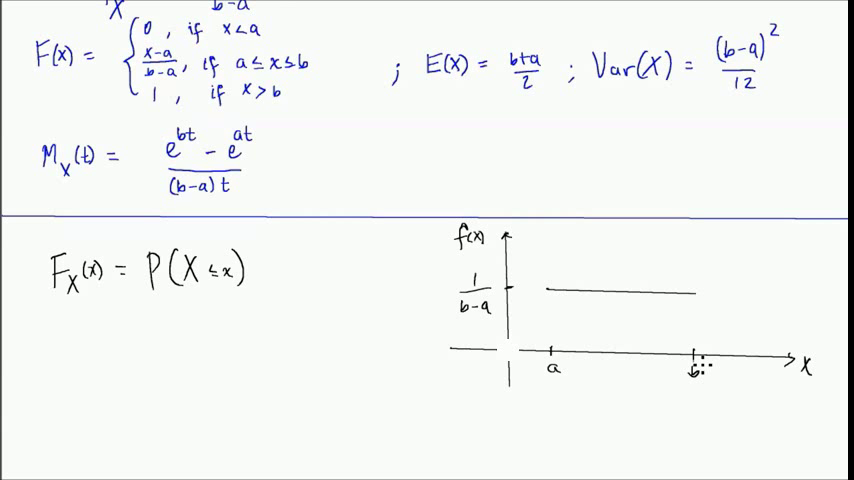 X b-a
F(x) = { 0, if x<a
x-a/b-a, if a≤x≤b
1, if x>b
; E(X) = b+a/2 ; Var(X) = (b-a)²/12
M_X(t) = e^bt - e^at/(b-a)t
F_X(x) = P(X ≤ x)
f(x)
1/b-a
a b x